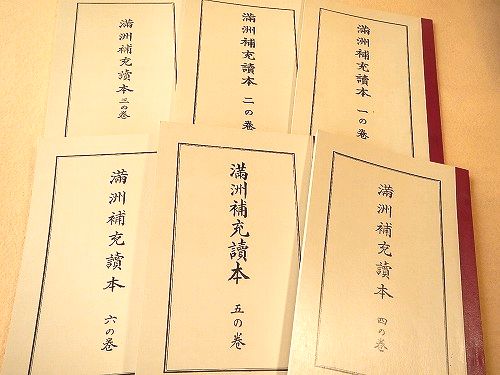 滿洲補充讀本 三の巻
滿洲補充讀本 二の巻
滿洲補充讀本 一の巻
滿洲補充讀本 六の巻
滿洲補充讀本 五の巻
滿洲補充讀本 四の巻